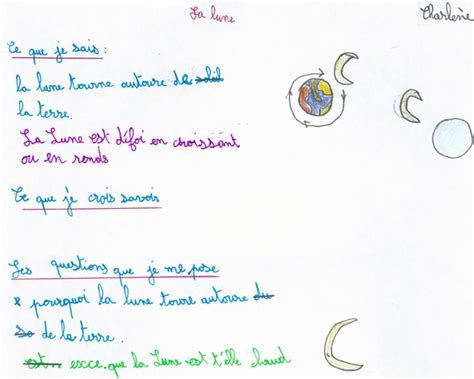 La lune
Charlène
Ce que je sais :
la lune tourne autoure de soleil
la terre.
La Lune est défoi en croissant
ou en ronds
Ce que je crois savoir
Les questions que je me pose
* pourquoi la lune toure autoure du
so de la terre.
est.. exce.que la Lune est t'elle chaud